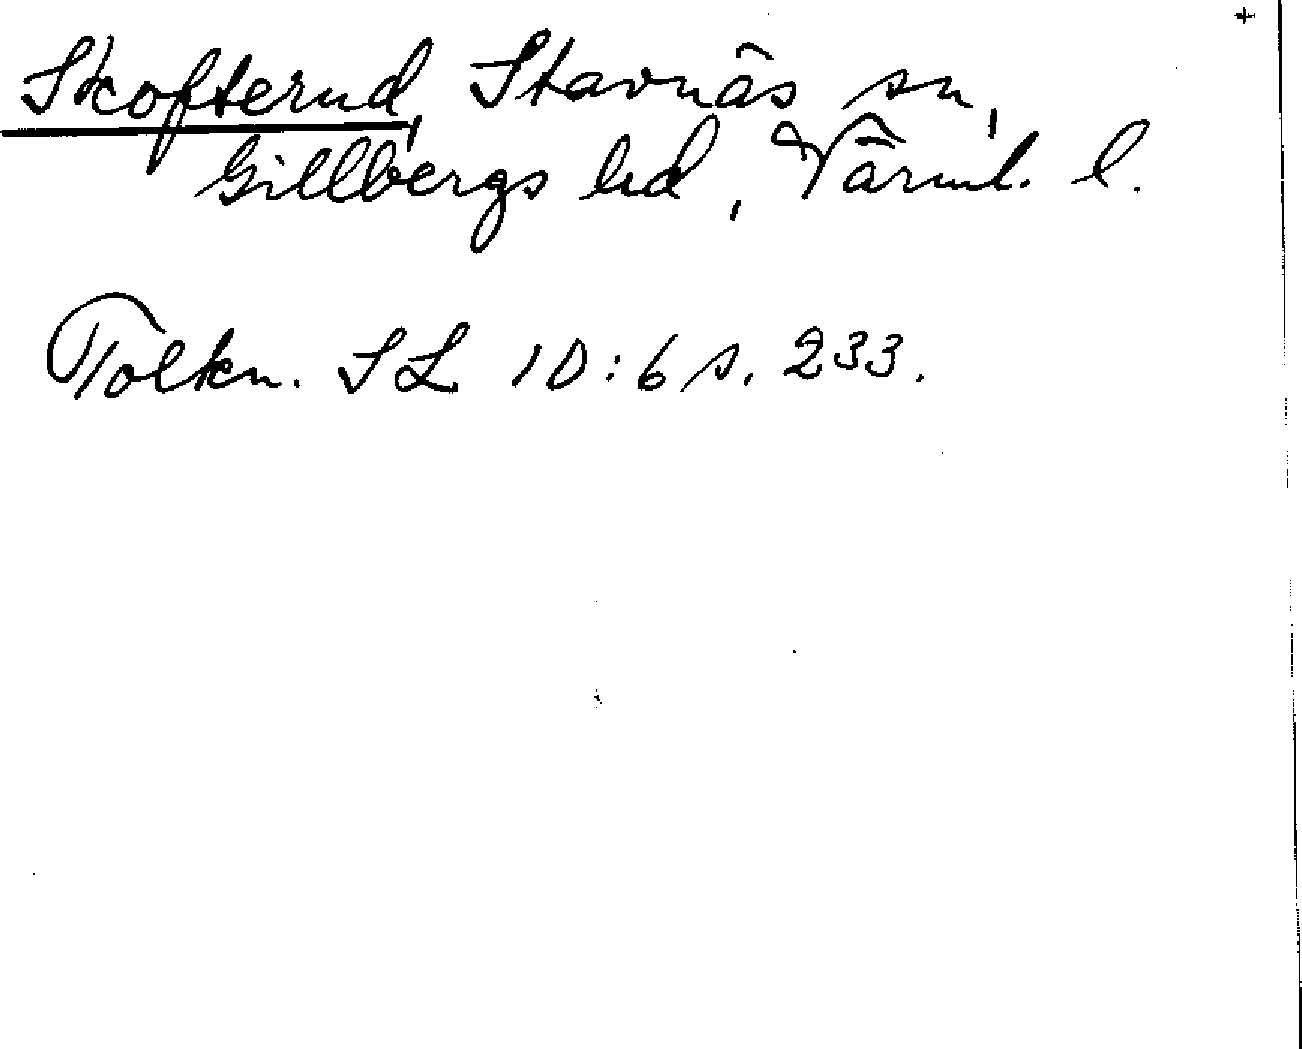 +
Skofterud, Stavnäs sn,
Gillbergs hd, Värml. l.
Tolkn. SL 10:6 s. 233.